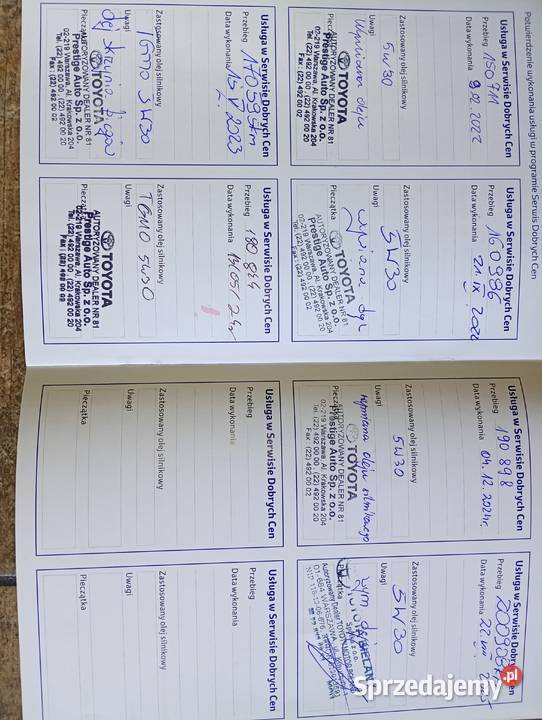 Potwierdzenie wykonania usługi w programie Serwis Dobrych Cen
Usługa w Serwisie Dobrych Cen
Przebieg 150711
Data wykonania 9.02.2022
Zastosowany olej silnikowy
5W30
Uwagi
Wymiana oleju
Pieczątka
TOYOTA
AUTORYZOWANY DEALER NR 81
Prestige Auto Sp. z o.o.
02-219 Warszawa, Al. Krakowska 204
Tel. (22) 492 00 00, (22) 492 00 20
Fax: (22) 492 00 02
Usługa w Serwisie Dobrych Cen
Przebieg 160986
Data wykonania 21 IX 2022
Zastosowany olej silnikowy
5W30
Uwagi
Pieczątka
TOYOTA
AUTORYZOWANY DEALER NR 81
Prestige Auto Sp. z o.o.
02-219 Warszawa, Al. Krakowska 204
Tel. (22) 492 00 00, (22) 492 00 20
Fax: (22) 492 00 02
Usługa w Serwisie Dobrych Cen
Przebieg 170595km
Data wykonania 15 V 2023
Zastosowany olej silnikowy
5W30
Uwagi
Pieczątka
TOYOTA
AUTORYZOWANY DEALER NR 81
Prestige Auto Sp. z o.o.
02-219 Warszawa, Al. Krakowska 204
Tel. (22) 492 00 00, (22) 492 00 20
Fax: (22) 492 00 02
Usługa w Serwisie Dobrych Cen
Przebieg 180844
Data wykonania
Zastosowany olej silnikowy
TGMO 5W30
Uwagi
Pieczątka
TOYOTA
AUTORYZOWANY DEALER NR 81
Prestige Auto Sp. z o.o.
02-219 Warszawa, Al. Krakowska 204
Tel. (22) 492 00 00, (22) 492 00 20
Fax: (22) 492 00 02
Usługa w Serwisie Dobrych Cen
Przebieg 190898
Data wykonania 04.12.2024r.
Zastosowany olej silnikowy
5W30
Uwagi
wymiana oleju silnikowego
Pieczątka
TOYOTA
AUTORYZOWANY DEALER NR 81
Prestige Auto Sp. z o.o.
02-219 Warszawa, Al. Krakowska 204
Tel. (22) 492 00 00, (22) 492 00 20
Fax: (22) 492 00 02
Usługa w Serwisie Dobrych Cen
Przebieg
Data wykonania
Zastosowany olej silnikowy
5W30
Uwagi
Pieczątka
Usługa w Serwisie Dobrych Cen
Przebieg
Data wykonania
Zastosowany olej silnikowy
Uwagi
Pieczątka
Usługa w Serwisie Dobrych Cen
Przebieg
Data wykonania
Zastosowany olej silnikowy
Uwagi
Pieczątka
Sprzedajemy.pl